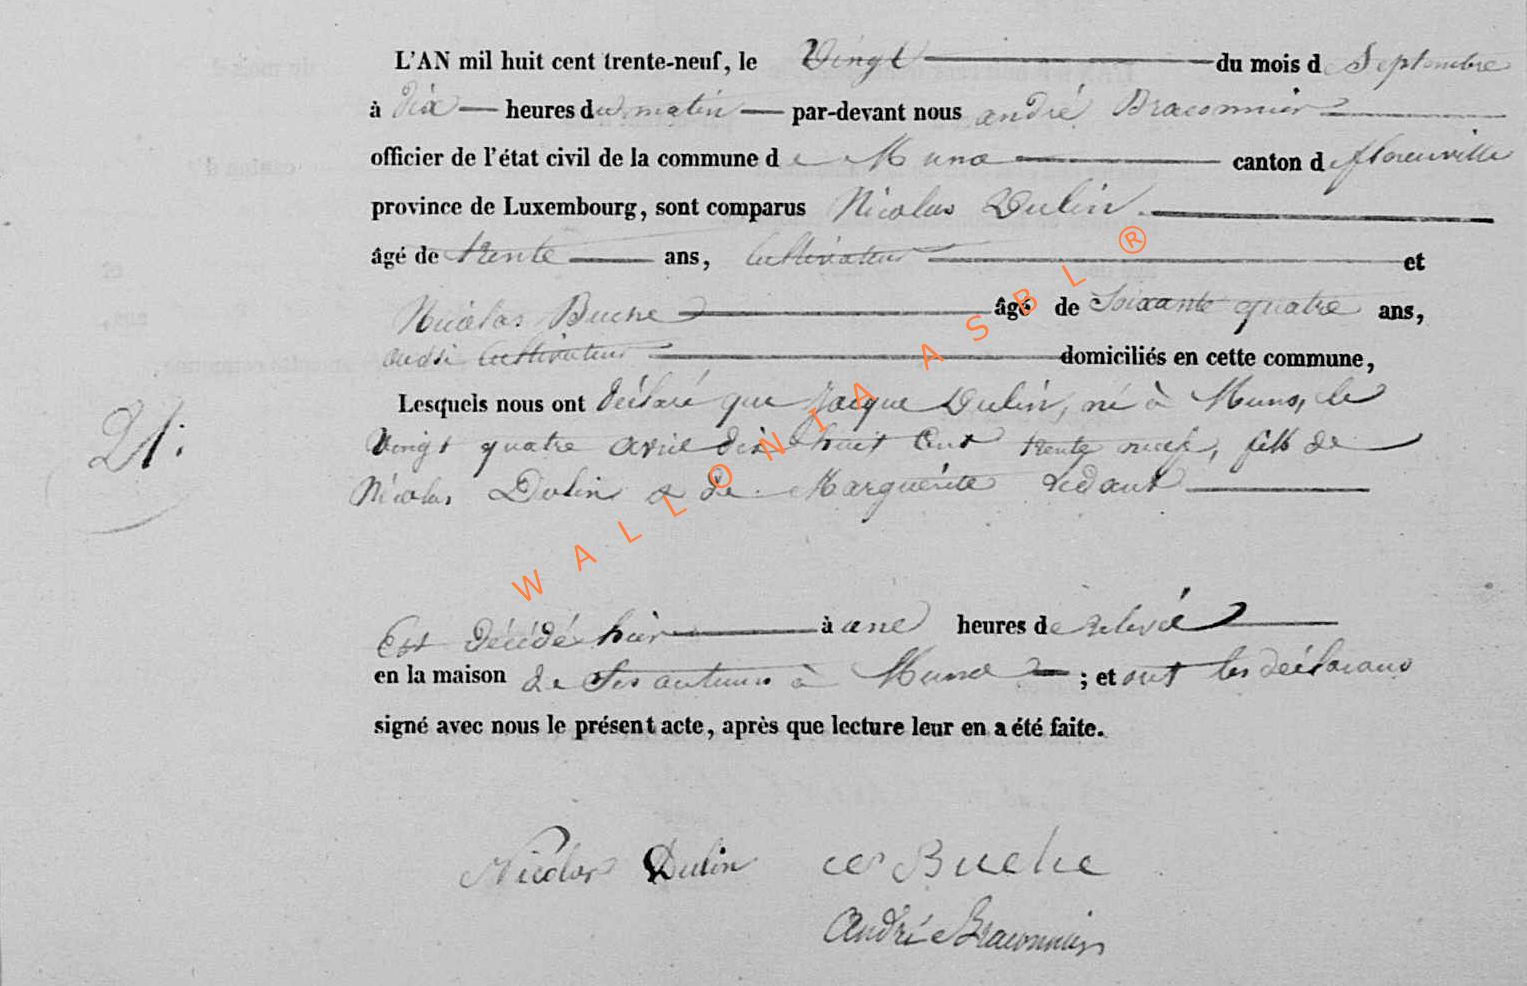 L'AN mil huit cent trente-neuf, le Vingt du mois de Septembre
à dix heures du matin par-devant nous andré Braconnier
officier de l'état civil de la commune de Muno canton de florenville
province de Luxembourg, sont comparus Nicolas Dulin
âgé de trente ans, Cultivateur et
Nicolas Buche âgé de Soixante quatre ans,
aussi Cultivateur domiciliés en cette commune,
Lesquels nous ont déclaré que Jacque Dulin, né à Muno, le
21.
Vingt quatre avril dix huit Cent trente neuf, fils de
Nicolas Dulin & de Marguerite
Est décédé hier à une heures de relevé
en la maison de Ses auteurs à Muno ; et ont les déclarans
signé avec nous le présent acte, après que lecture leur en a été faite.
Nicolas Dulin Buche
André Braconnier
WALLONIA ASBL ®